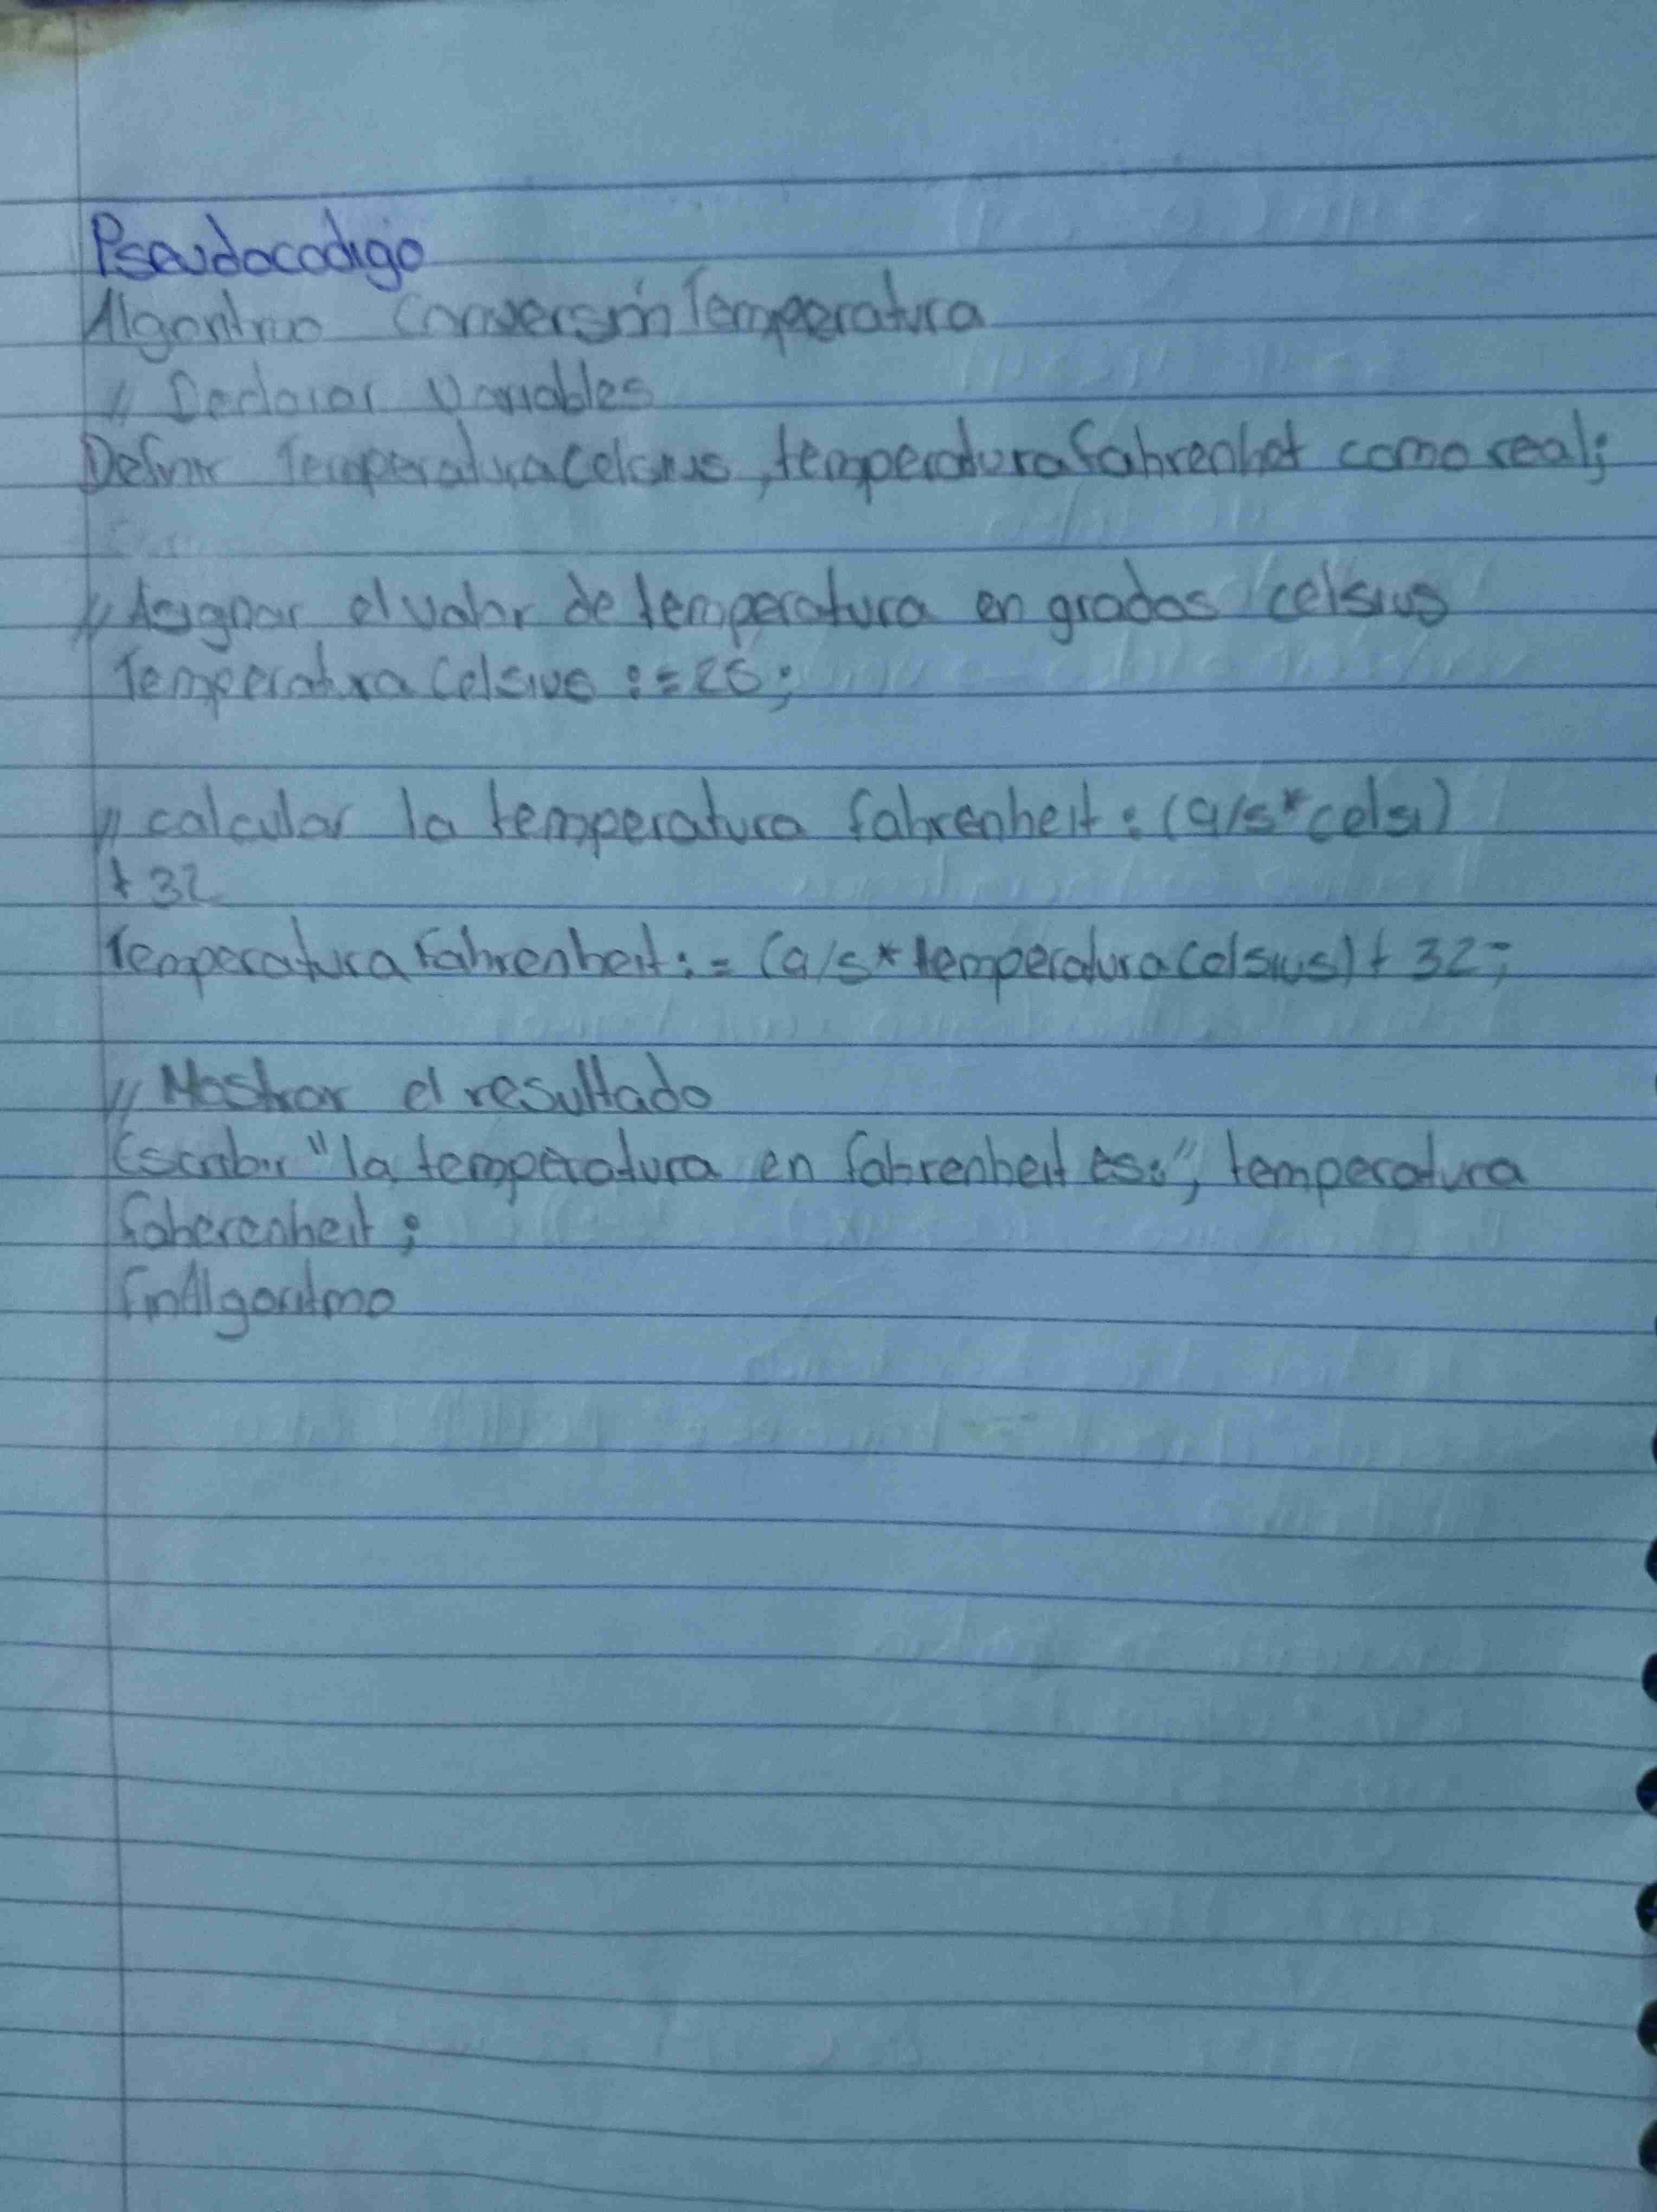 Pseudocodigo
Algoritmo ConversiónTemperatura
// Declarar Variables
Definir TemperaturaCelsius, temperaturafahrenheit como real;
// Asignar el valor de temperatura en grados celsius
TemperaturaCelsius := 25;
// calcular la temperatura fahrenheit: (9/5*celsi)
+ 32
Temperatura Fahrenheit := (9/5*temperaturaCelsius) + 32;
// Mostrar el resultado
Escribir "la temperatura en fahrenheit es:", temperatura
faherenheit;
finAlgoritmo